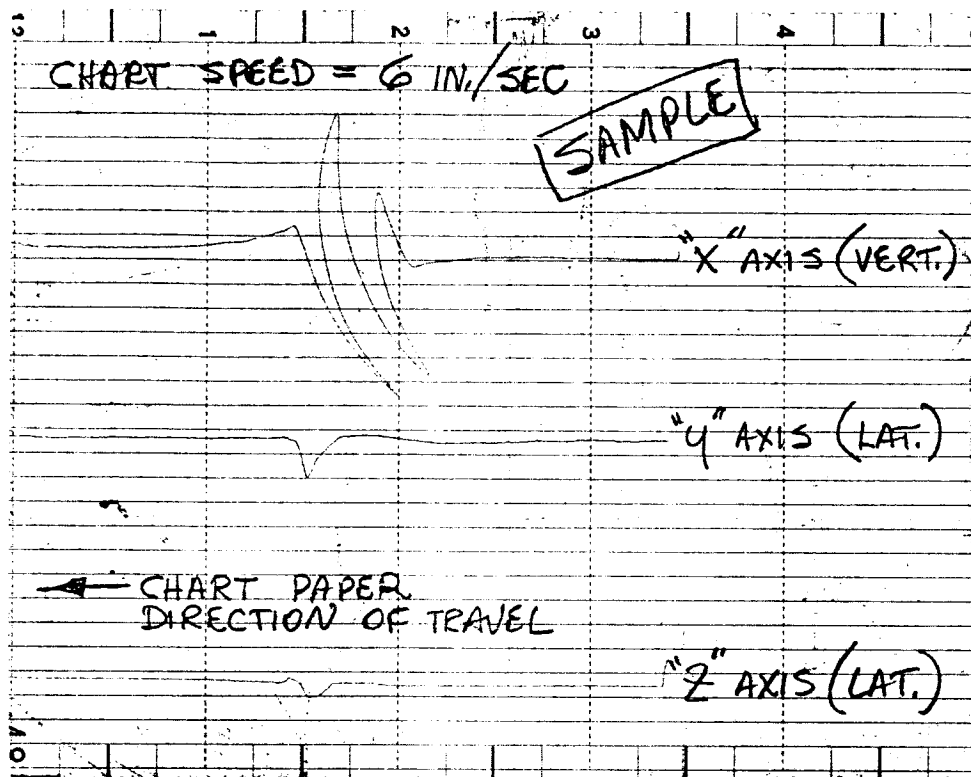 12 1 2 3 4
CHART SPEED = 6 IN./SEC
SAMPLE
"X" AXIS (VERT.)
"Y" AXIS (LAT.)
CHART PAPER
DIRECTION OF TRAVEL
"Z" AXIS (LAT.)